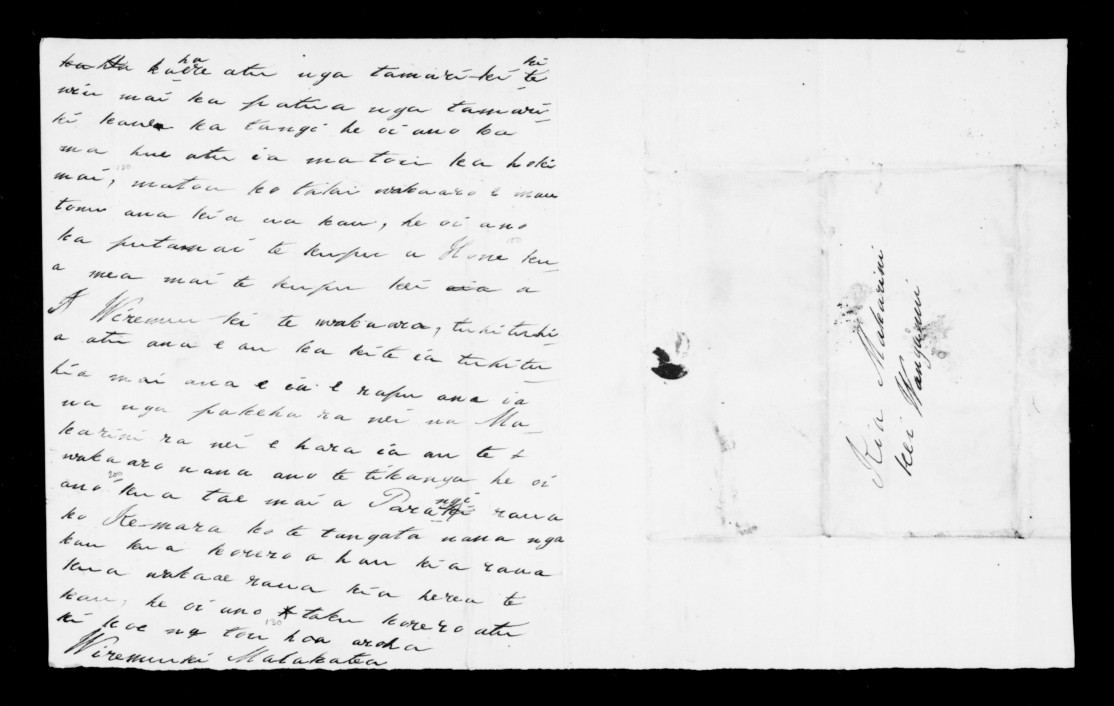 kahore atu nga tamariki ki te
wiu mai ka patua nga tamari-
ki ka tangi he oi ano ka
ma hue atu ia matou ka hoki
mai, matou ko taku wakaaro e mau
tonu ana kia ua kau, he oi ano
ka putamai te kupu a Hone ku-
a mea mai te kupu kei a
A Wiremu ki te wakaaro, tuhituhi-
a atu ana e au ka kite ia tuhitu-
hia mai ana e ia e rapu ana ia
na nga pakeha ra nei na Ma-
karini ra nei e hara ia au te
wakaaro nana ano te tikanga he oi
ano kua tae mai a Parangi raua
ko Kemara ko te tangata nana nga
kau kua korero a hau kia raua
kua wakaae raua kia herea te
kau, he oi ano taku korero atu
ki koe na tou hoa aroha
Wiremuki Matakatea
Kia Makarini
kei Wanganui